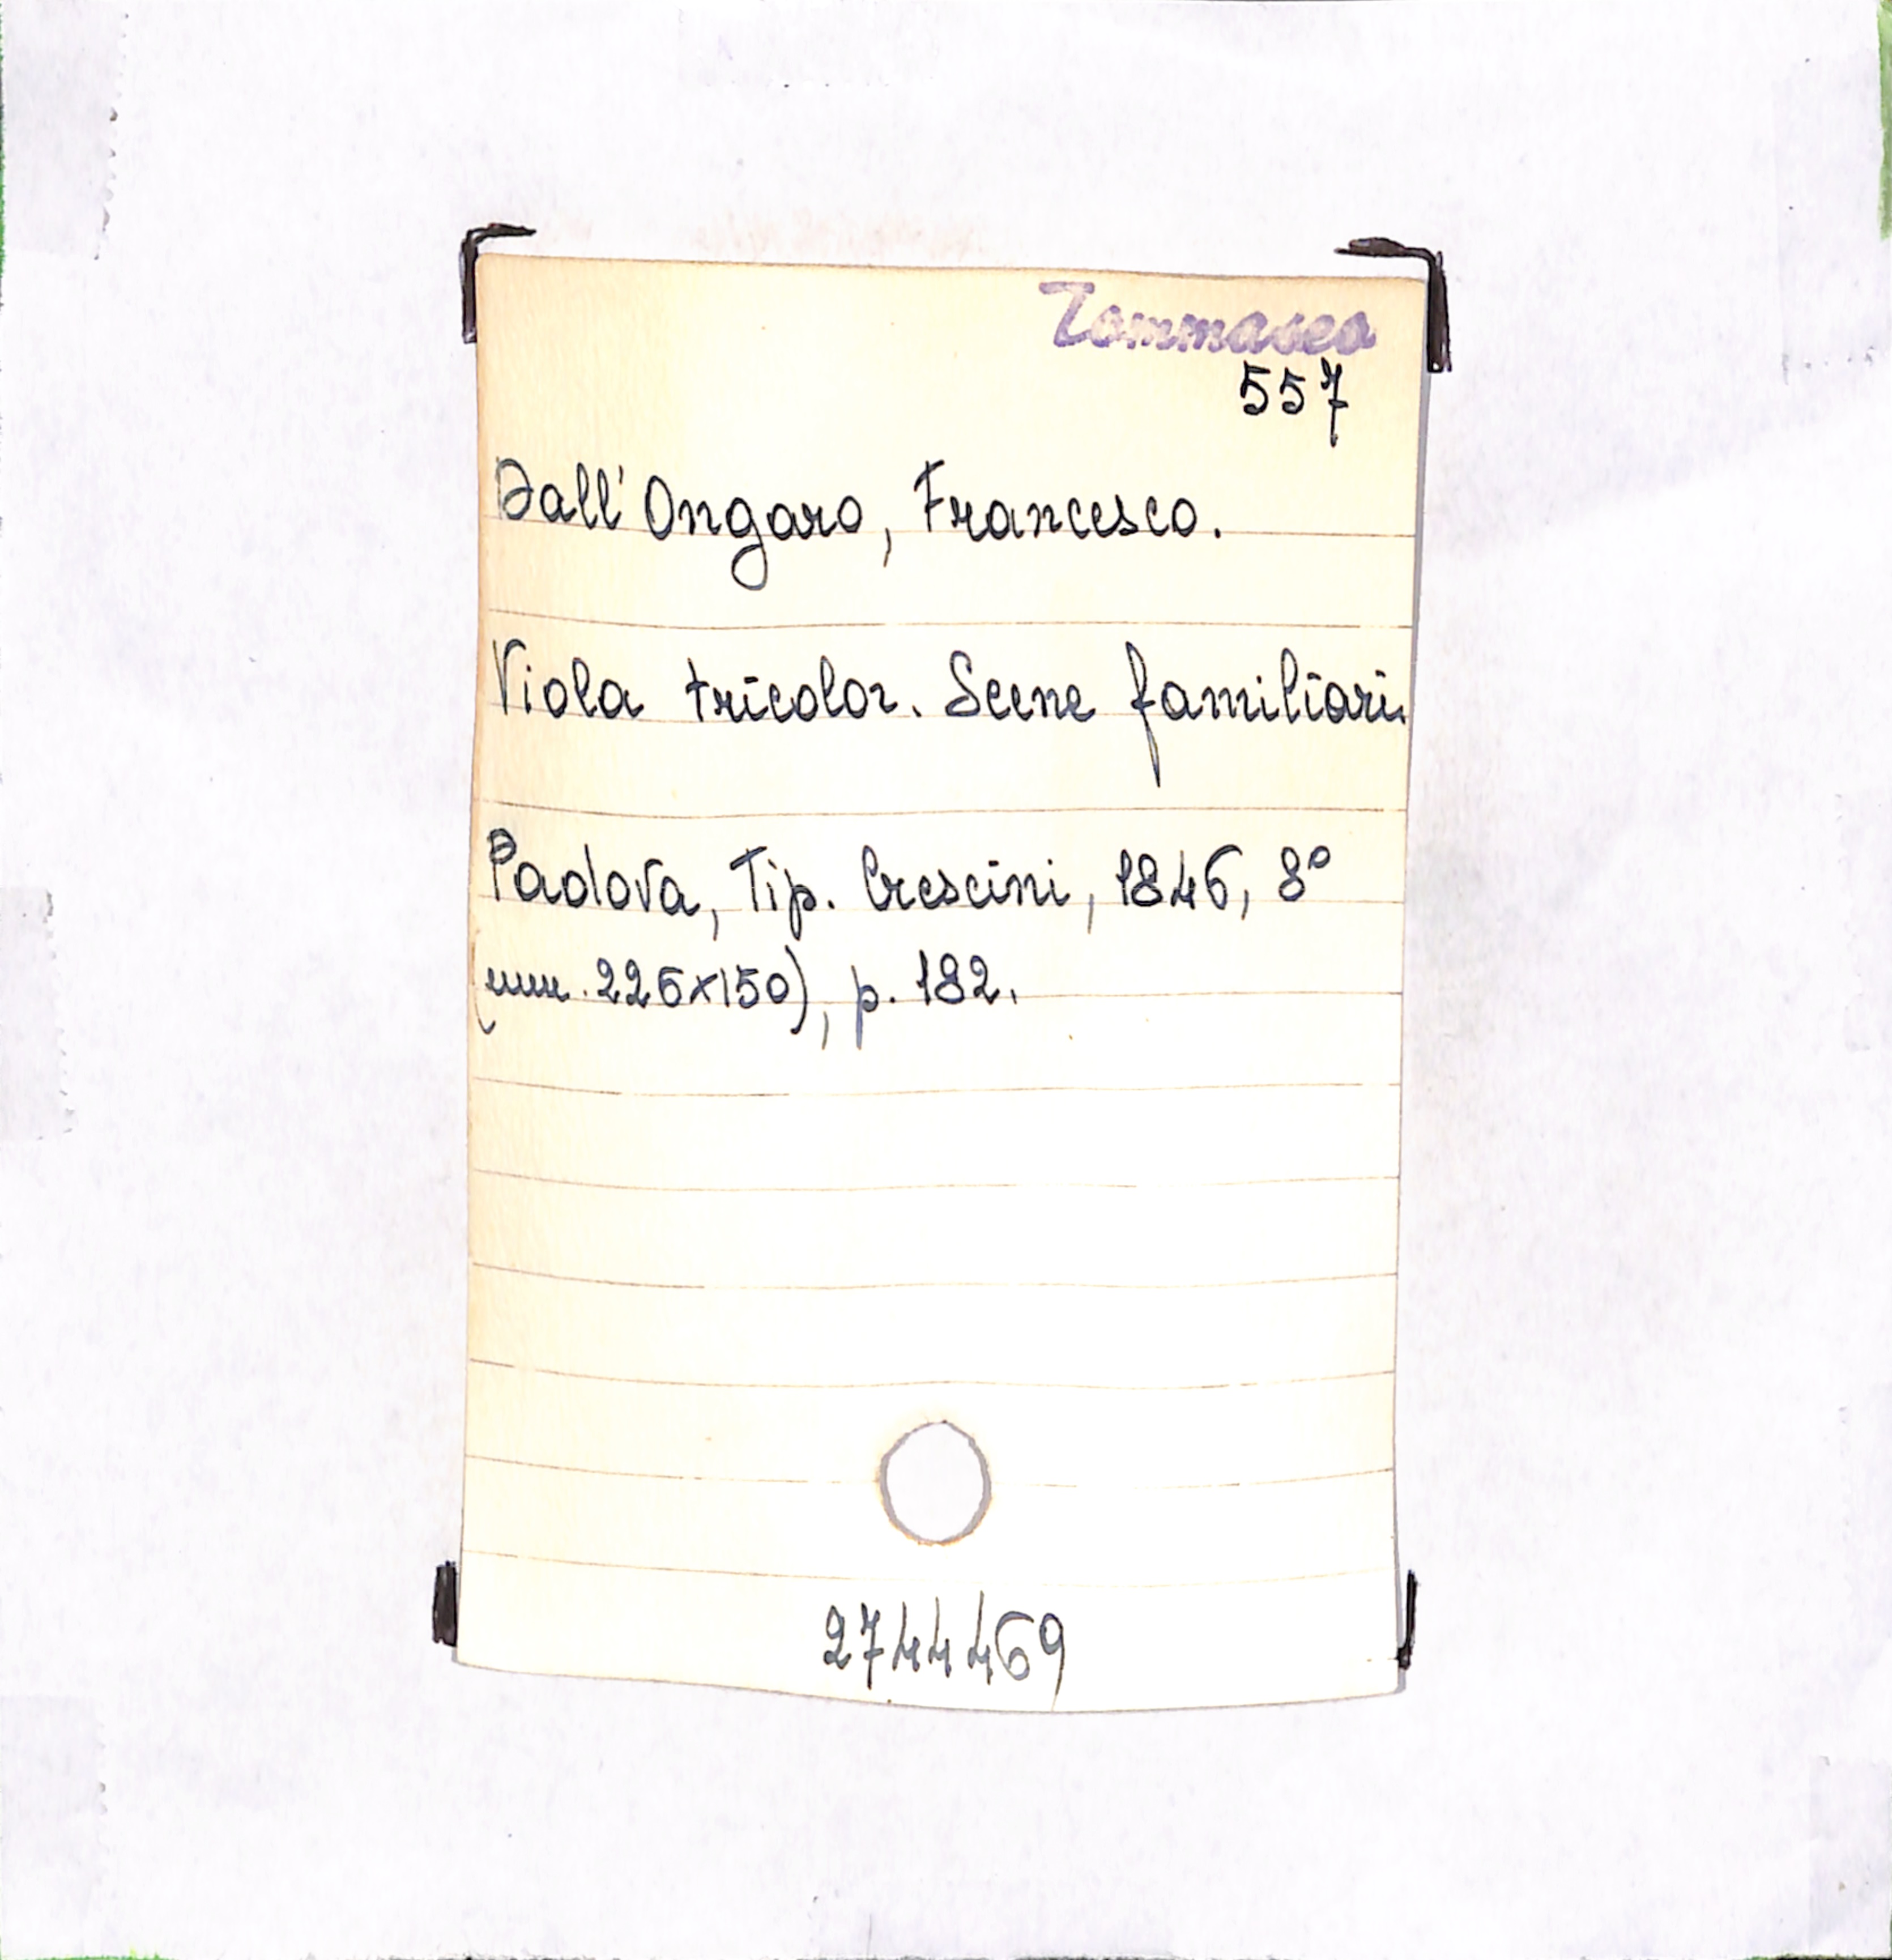 Tommaseo
557
Dall'Ongaro, Francesco.
Viola tricolor. Scene familiari.
Padova, Tip. Crescini, 1846, 8º
(mm. 226x150), p. 182.
2744469